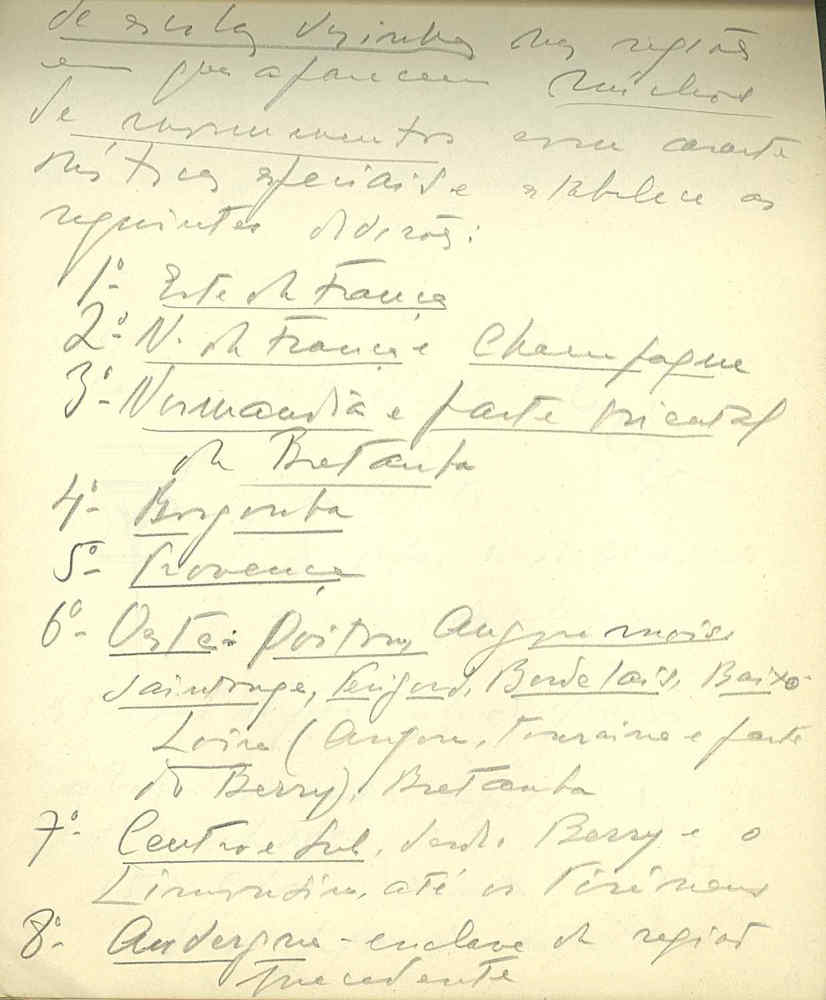 de escolas vizinhas nas regiões
em que aparecem núcleos
de monumentos com caracte
rísticas especiais e estabelece as
seguintes divisões:
1º- Este da França
2º- N. da França e Champagne
3º- Normandia e parte oriental
da Bretanha
4º- Borgonha
5º- Provença
6º- Oeste: Poitou, Angoumois,
Saintonge, Périgord, Bordelais, Baixo-
Loire (Anjou, Touraine e parte
do Berry), Bretanha
7º- Centro e Sul, desde Berry e o
Limousin, até os Pirineus
8º- Auvergne - enclave da região
precedente